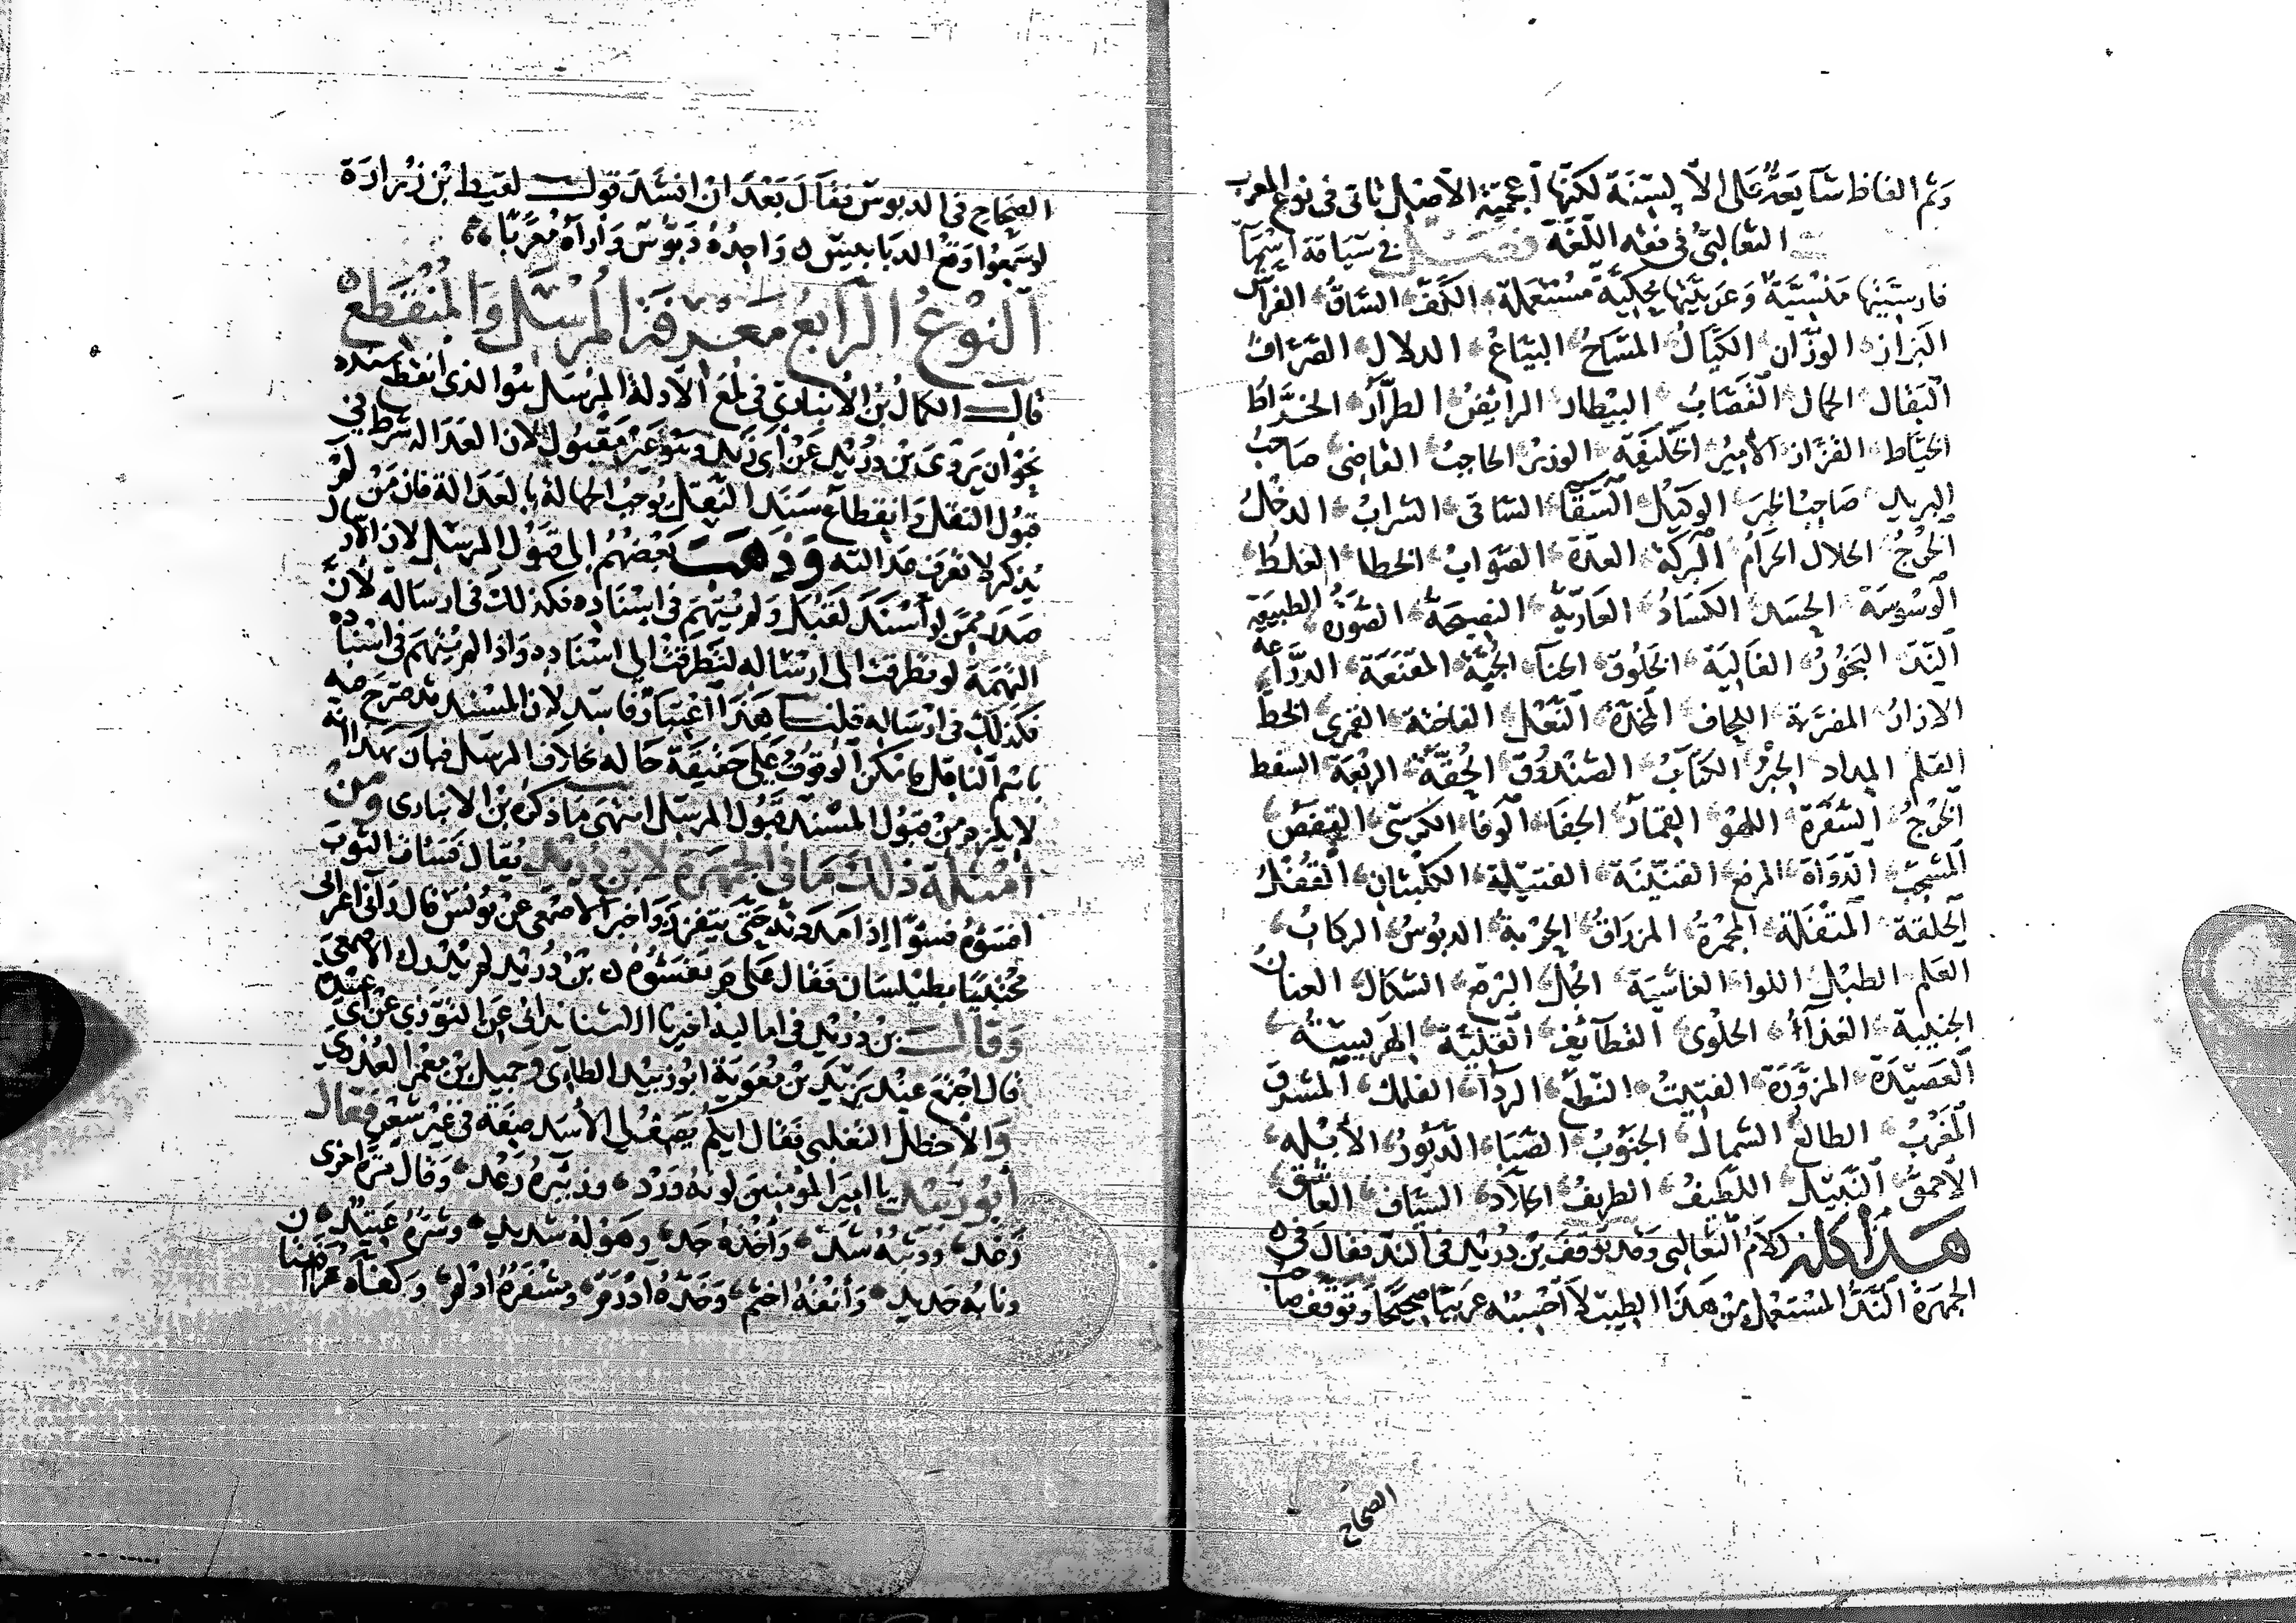 وثم الفاظ شايعة على الالسنة لكنها أعجمية الأصل تاتى فى نوع المعرب
الثعالبى فى فقه اللغة فصل فى سياقة اسماء
فارسيتها منسية وعربيتها محكية مستعملة الكف الساق الفراش
البزاز الوزان الكيال المساح البياع الدلال الصراف
البقال الجمال القصاب البيطار الرائض الطراز الخراط
الخياط القزاز الأمير الخليفة الوزير الحاجب القاضى صاحب
البريد صاحب الخبر الوكيل السقا الساقى الشراب الدخل
الخرج الحلال الحرام البركة العدة الصواب الخطا الغلط
الوسوسة الحسد الكساد العارية النصيحة الصورة الطبيعة
الند البخور الغالية الخلوق الحنا الجبة المقنعة الدراعة
الازار المضربة اللحاف المخدة النعل الفاختة القمرى الخط
القلم المداد الحبر الكتاب الصندوق الحقة الربعة السفط
الخرج السفرة اللهو القمار الجفا الوفا الكرسى القفص
المشجب الدواة المرفع القنينة الفتيلة الكلبتان القفل
الحلقة المنقلة المجمرة المزراق الحربة الدبوس الركاب
العلم الطبل اللوا الغاشية الجل البرقع الشكال العنان
الجنيبة الغذاء الحلوى القطائف القلية الهريسة
العصيدة المزورة الفتيت النطع الردا الفلك المشرق
المغرب الطالع الشمال الجنوب الصبا الدبور الأبله
الاحمق النبيل اللطيف الظريف الجلاد السياف العاشق
هذا كله كلام الثعالبى وقد توقف بن دريد فى الند فقال فى
الجمهرة الند المستعمل من هذا الطيب لا أحسبه عربيا صحيحا وتوقف صاحب
الصحاح
الصحاح فى الدبوس فقال بعد ان انشد قول لقيط بن زرارة
لو سمعوا وقع الدبابيس واحده دبوس وأراه معربا
النوع الرابع معرفة المرسل والمنقطع
قال الكمال بن الأنبارى فى لمع الأدلة المرسل هو الذى انقطع سنده
نحو أن يروى بن دريد عن أبى زيد وهو غير مقبول لان العدالة شرط فى
قبول النقل وانقطاع سند النقل يوجب الجهالة بالعدالة فان من لم
يذكر لا تعرف عدالته وذهب بعضهم الى قبول المرسل لان الارسال
صدر ممن لو أسند لقبل ولم يتهم فى اسناده فكذلك فى ارساله لأن
التهمة لو تطرقت الى ارساله لتطرقت الى اسناده واذا لم يتهم فى اسناده
فكذلك فى ارساله قلنا هذا اعتبار فاسد لان المسند قد صرح فيه
باسم الناقل فامكن الوقوف على حقيقة حاله بخلاف المرسل فبان بهذا انه
لا يلزم من قبول المسند قبول المرسل انتهى ما ذكره بن الانبارى ومن
أمثلة ذلك ما فى الجمهرة لابن دريد يقال فسات الثوب
افسؤه فسوا إذا مددته حتى يتفزر واخبر الاصمعى عن يونس قال رآنى اعرابى
محتبيا بطيلسان فقال علام تفسؤه بن دريد لم يدرك الأصمعى
وقال بن دريد فى اماليه اخبرنا الاشناندانى عن التوزى عن أبى عبيدة
قال اجتمع عند يزيد بن معوية ابو زبيد الطائى وجميل بن معمر العذرى
والأخطل التغلبى فقال ايكم يصف لى الأسد صفة فى غير شعر فقال
أبو زبيد يا امير المومنين لونه ورد وزئيره رعد وقال مرة اخرى
زغد ووثبه شد وأخذه جد وهوله شديد وشره عتيد
ونابه حديد وأنفه اخثم وخده ادرم ومشفره ادلم وكفاه عراضتان